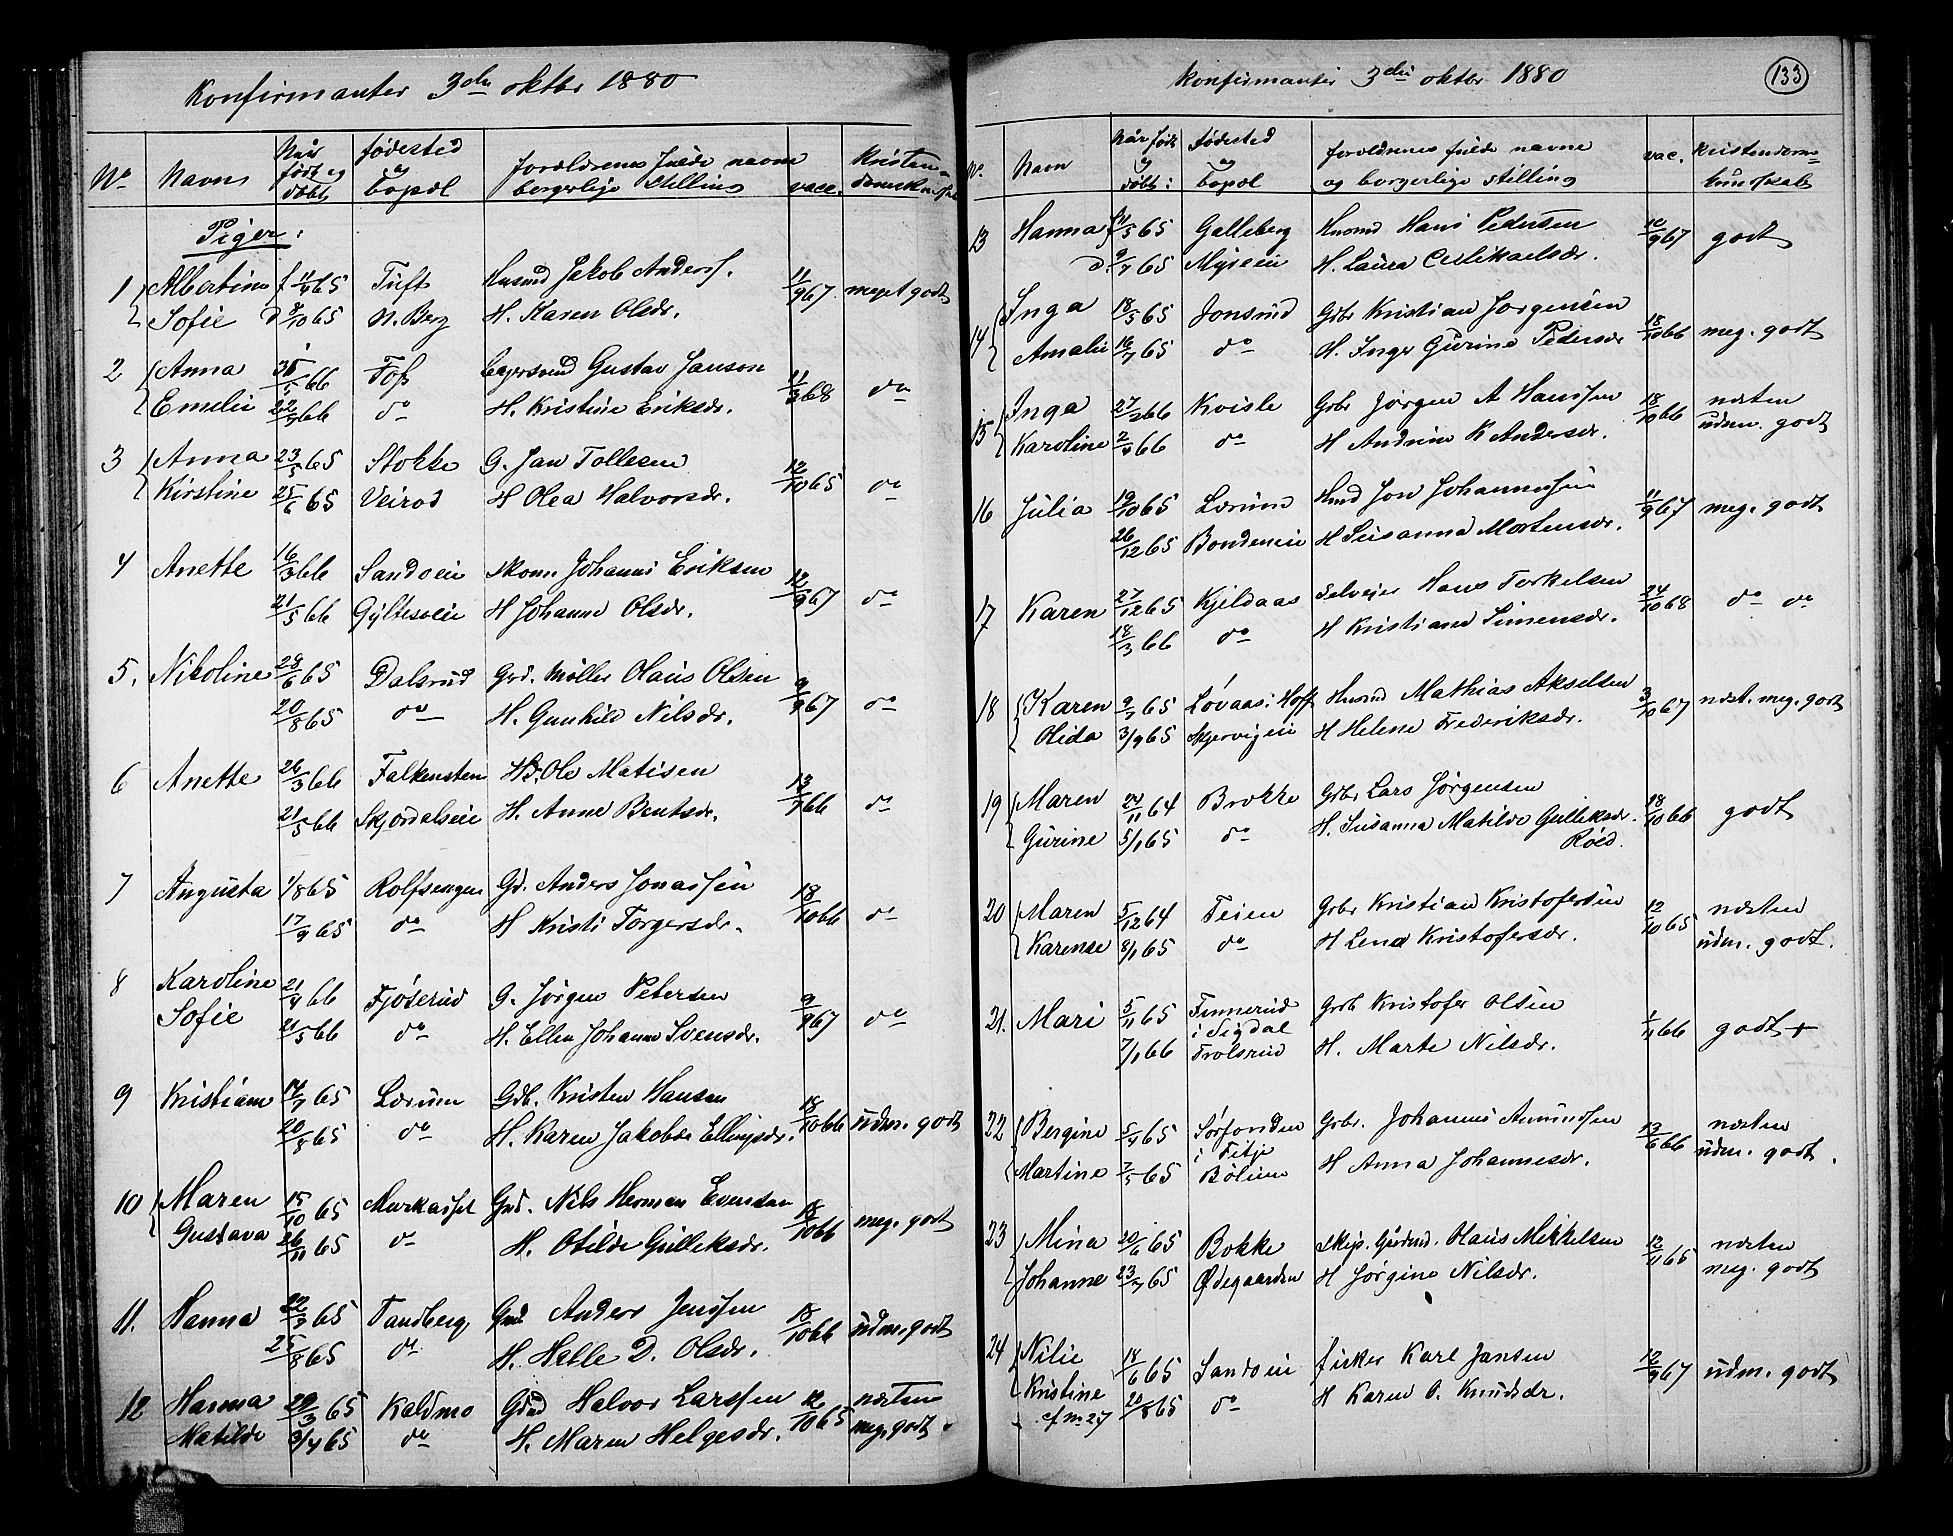 Konfirmanter 3die oktbr 1880
No Navn Når født og døbt fødested og Bopæl forældrenes fulde navne borgerlige stilling vacc. Kristendomskundsk.
Piger:
1 Albertine f 11/4 65 Tuft Husmd Jakob Anderss. 11/9 67 meget godt
Sofie d 8/10 65 N. Berg H. Karen Olsdr.
2 Anna 31/1 66 Foss Eiersmd Gustav Janson 11/3 68 do
Emelie 22/4 66 do H. Kristine Eriksdr.
3 Anna 23/5 65 Stokke G. Jan Tollesen 12/10 65 do
Kirstine 25/6 65 Veirød H Olea Halvorsdr.
4 Anette 16/3 66 Sandveien skom. Johannes Eriksen 12/9 67 do
21/5 66 Gyltesøeie H Johanne Olsdr.
5. Nikoline 28/6 65 Dalsrud Grd. møller Olaus Olsen 9/9 67 do
20/8 65 do H. Gunhild Nilsdr.
6 Anette 26/3 66 Falkensten Hd. Ole Matisen 13/9 66 do
21/5 66 Skjørdalseie H. Anne Bentsdr.
7 Augusta 1/8 65 Rolfsengen Gd. Anders Jonassen 18/10 66 do
17/9 65 do H Kristi Torgersdr.
8 Karoline 21/4 66 Fjøserud G. Jørgen Petersen 9/9 67 do
Sofie 21/5 66 do H. Ellen Johanne Svensdr.
9 Kristiane 14/7 65 Lærum Gdb. Kristen Hansen 18/10 66 udm. godt
20/8 65 do H. Karen Jakobsdr Ellingsdr.
10 Maren 15/10 65 Markasset Grd. Nils Herman Evensen 18/10 66 meg. godt
Gustava 26/11 65 do H. Otilde Gulliksdr.
11. Hanna 22/7 65 Tandberg Gmd Anders Jenssen 18/10 66 udm. godt
25/8 65 do H. Helle D. Olsdr.
12 Hanna 20/3 65 Kaldmo Gdmd Halvor Larssen 12/10 65 næsten
Matilde 3/4 65 do H. Maren Helgesdr. meg. godt
Konfirmanter 3die oktbr 1880 133
No. Navn Når født og døbt: Fødested og Bopæl forældrenes fulde navne og borgerlige stilling vac. kristendomskundskab
13 Hanna f 11/5 65 Galleberg Husmd Hans Pedersen 10/9 67 godt
d. 9/7 65 Myreeie H. Laura Mikaelsdr.
14 Inga 18/5 65 Jonsrud Grbr Kristian Jørgensen 18/10 66 meg. godt
Amalie 16/7 65 do H. Inger Gurine Pedersdr
15 Inga 27/2 66 Kvisle Grbr Jørgen A Hanssen 18/10 66 næsten
Karoline 2/4 66 do H Andrine K Andersdr. udm. godt
16 Julia 19/10 65 Lærum Hmd Jon Johannessen 11/9 67 meg. godt
26/12 65 Bondeeie H Susanna Mortensdr.
17 Karen 27/12 65 Kjeldaas Selveier Hans Torkelsen 24/10 68 do do
18/3 66 do H Kristiane Simensdr.
18 Karen 9/7 65 Løvaas i Hoff Husmd Mathias Akselsen 3/10 67 næst. meg. godt
Olida 3/9 65 Skjervigeie H Helene Frederiksdr.
19 Maren 24/11 64 Brekke Grbr Lars Jørgensen 18/10 66 godt
Gurine 5/1 65 do H. Susanna Matilde Gulliksdr.
Røed.
20 Maren 5/12 64 Teien Grbr Kristian Kristofersen 12/10 65 næsten
Karense 8/1 65 do H Lena Kristofersdr. udm. godt.
21. Mari 5/11 65 Finnerud i Sigdal Grb Kristofer Olsen 1/11 66 godt +
7/1 66 Trolsrud H. Marte Nilsdr.
22 Bergine 5/4 65 Sørfonden i Titje Grbr. Johannes Amundsen 13/6 66 næsten
Martine 7/5 65 Bølum H Anna Johannesdr. udm. godt.
23 Mina 20/6 65 Bokke skip. Gårdmd. Olaus Mikkelsen 12/11 65 næsten
Johanne 23/7 65 Ødegaarden H Jørgine Nilsdr. meg. godt
24 Nilie 18/6 65 Sandveien fisker Karl Jansen 12/9 67 udm. godt
Kristine 20/8 65 do H Karen O. Knudsdr.
cf. no 27